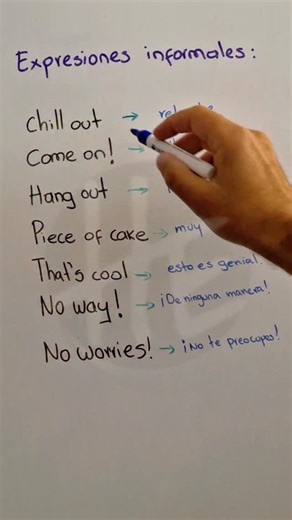 Expresiones informales:
Chill out →
Come on! →
Hang out →
Piece of cake → muy
That's cool → esto es genial!
No way! → ¡De ninguna manera!
No worries! → ¡No te preocupes!